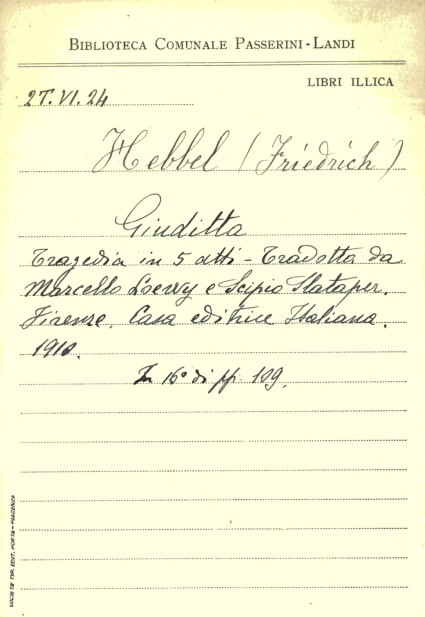 BIBLIOTECA COMUNALE PASSERINI-LANDI
LIBRI ILLICA
2T.VI.24
Hebbel (Friedrich)
Giuditta
Tragedia in 5 atti - Tradotta da
Marcello Loewy e Scipio Slataper.
Firenze, Casa editrice Italiana.
1910.
In 16° di pp. 109.
SOCIETÀ TIP. EDIT. PORTA - PIACENZA